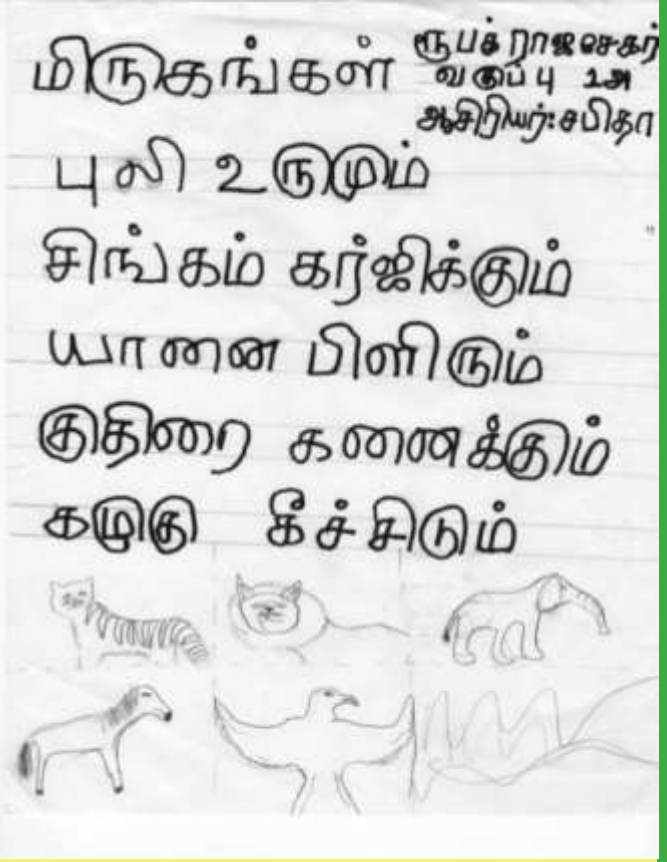 மிருகங்கள்
ரூபக் ராஜசேகர்
வகுப்பு 2அ
ஆசிரியர்: சபிதா
புலி உருமும்
சிங்கம் கர்ஜிக்கும்
யானை பிளிரும்
குதிரை கனைக்கும்
கழுகு கீச்சிடும்